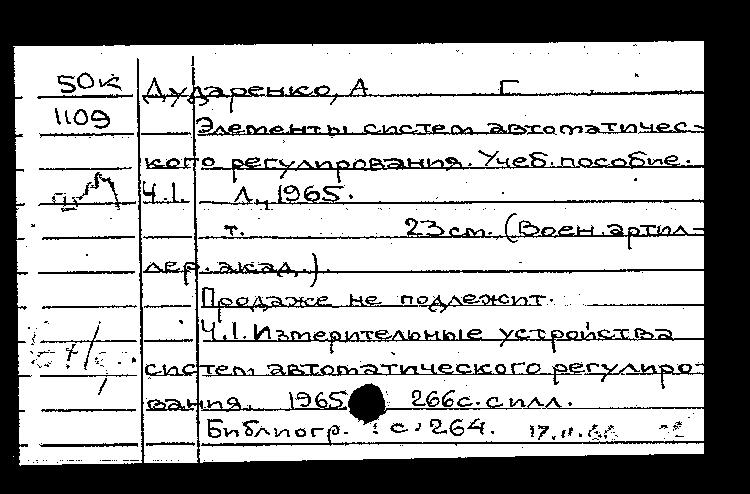 50к Дударенко, А Г
1109 Элементы систем автоматичес-
кого регулирования. Учеб. пособие.
Ч.1. Л., 1965.
т. 23 cm. (Воен. артил-
лер. акад.).
Продаже не подлежит.
Ч.1. Измерительные устройства
систем автоматического регулиро-
вания. 1965 266с. с илл.
Библиогр. : с. 264. 17.II.66